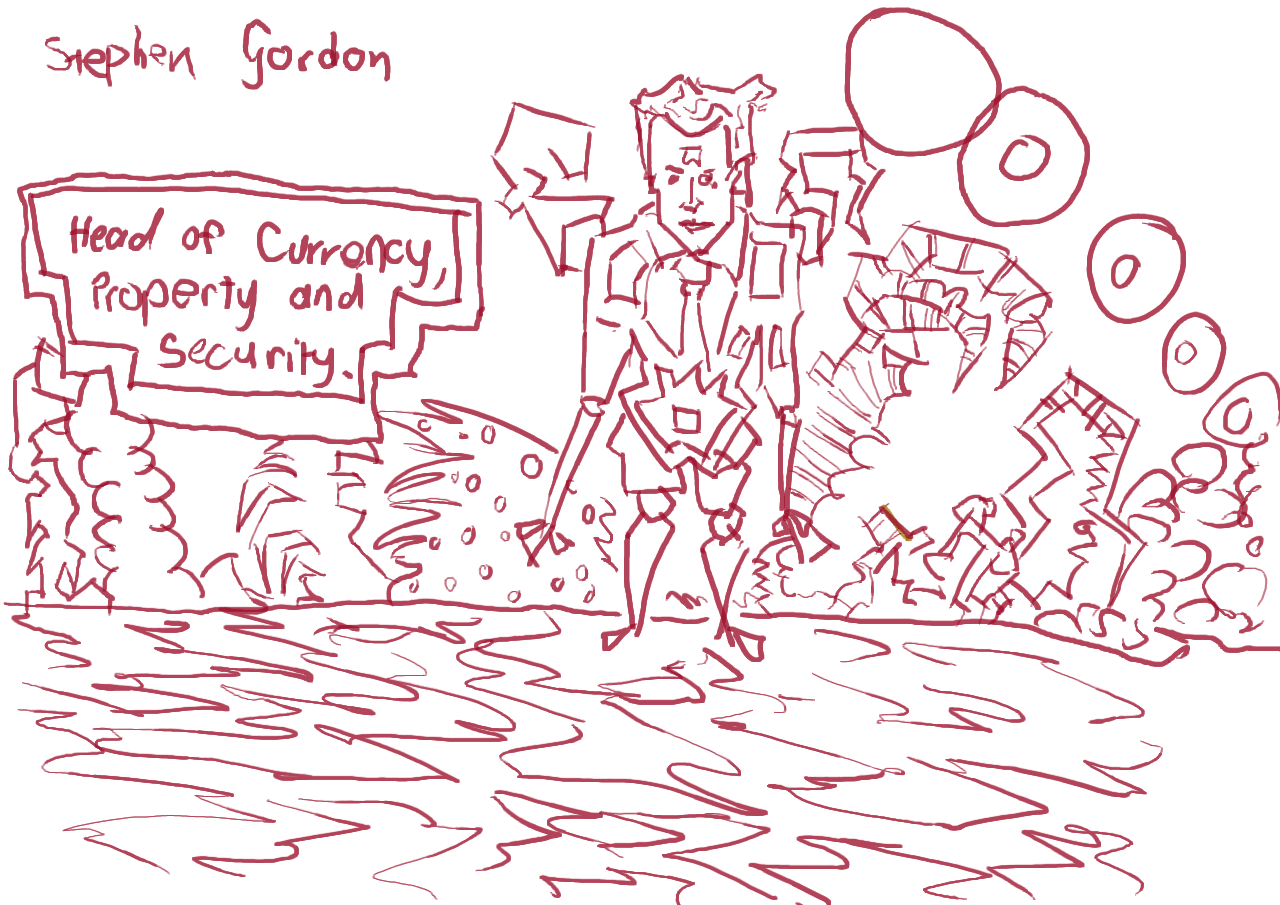 Stephen Gordon
Head of Currency,
Property and
Security.